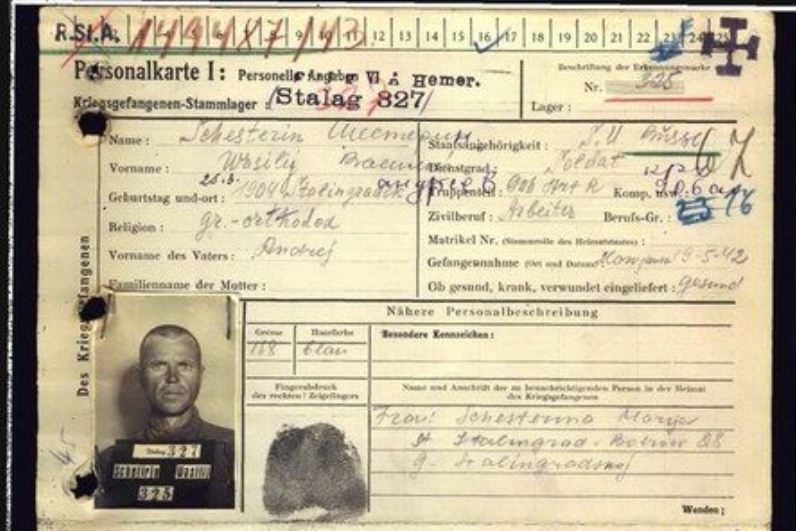 R.St.A. 149487/43
1 2 3 4 5 6 7 8 9 10 11 12 13 14 15 16 17 18 19 20 21 22 23 24 25
Personalkarte I: Personelle Angaben VI A Hemer.
Kriegsgefangenen-Stammlager: Stalag 327
Beschriftung der Erkennungsmarke
Nr. 325
Lager:
Des Kriegsgefangenen
Name: Schesterin
Vorname: Wasilij
Geburtstag und-ort: 25.3. 1904 Stalingrad
Religion: gr.-orthodox
Vorname des Vaters: Andrej
Familienname der Mutter:
Staatsangehörigkeit: S.U. Russe
Dienstgrad: Soldat
Truppenteil: 906 Art R Komp. usw.:
Zivilberuf: Arbeiter Berufs-Gr.: 16
Matrikel Nr. (Stammrolle des Heimatstaates):
Gefangennahme (Ort und Datum): 19-5-42
Ob gesund, krank, verwundet eingeliefert: gesund
Nähere Personalbeschreibung
Grösse Haarfarbe Besondere Kennzeichen:
168 blau
Fingerabdruck
des rechten! Zeigefingers
Name und Anschrift der zu benachrichtigenden Person in der Heimat
des Kriegsgefangenen
Frau! Schesterina Marija
st Stalingrad
g. Stalingradskaj
Stalag 327
SCHESTERIN WASSILIJ
325
Wenden!